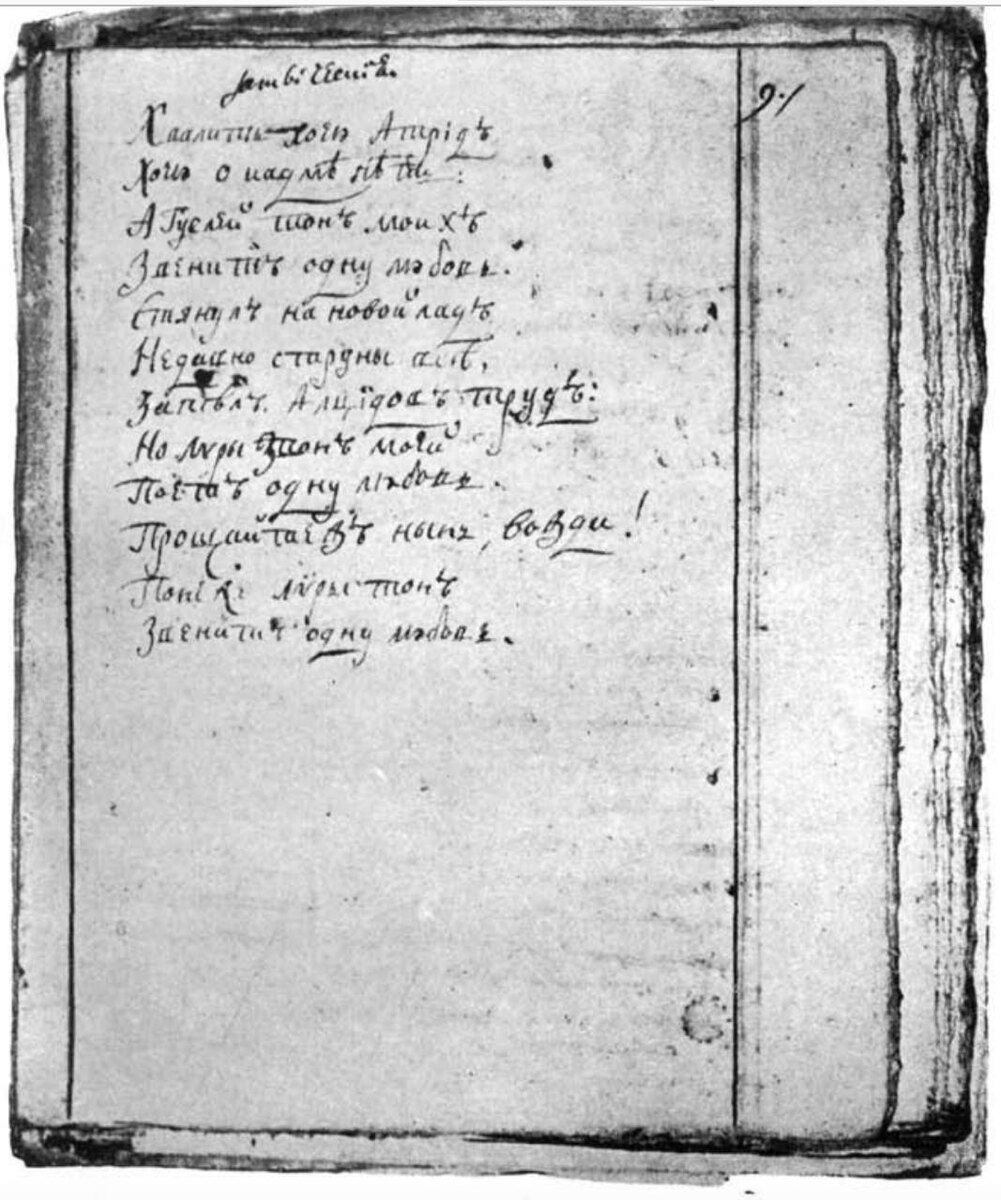 9./
Хвалить хочу Атрідъ
Хочу о кадмѣ пѣть:
А Гуслей тонъ моихъ
Звенитъ одну любовь.
Стянулъ на новой ладъ
Недавно струны всѣ,
Запѣлъ Алцідовъ трудъ:
Но лѵры звонъ моей
Поетъ одну любовь.
Прощайтежъ нынь, вожди!
Понеже лѵры тонъ
Звенитъ одну любовь.